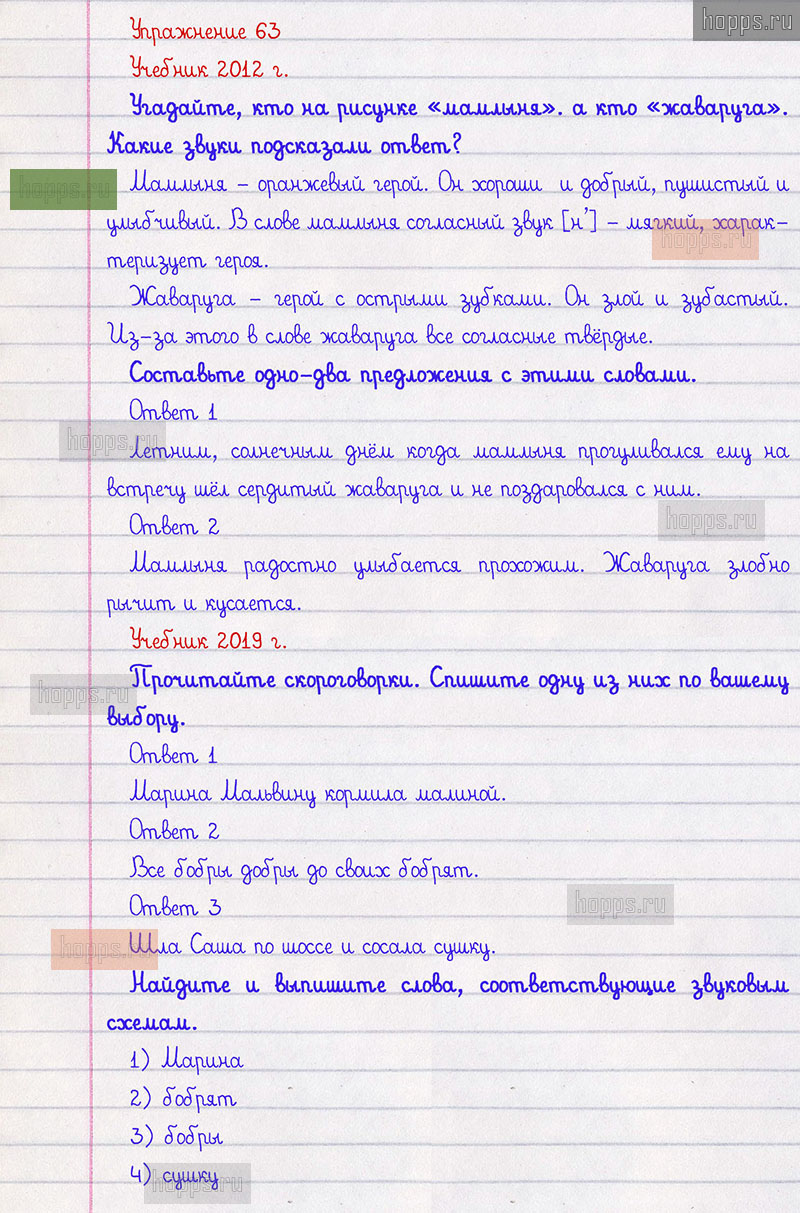 hopps.ru
Упражнение 63
Учебник 2012 г.
Угадайте, кто на рисунке «мамлыня». а кто «жаваруга».
Какие звуки подсказали ответ?
hopps.ru
Мамлыня – оранжевый герой. Он хораши и добрый, пушистый и
улыбчивый. В слове мамлыня согласный звук [н'] – мягкий, харак-
hopps.ru
теризует героя.
Жаваруга – герой с острыми зубками. Он злой и зубастый.
Из-за этого в слове жаваруга все согласные твёрдые.
Составьте одно-два предложения с этими словами.
Ответ 1
hopps.ru
Летним, солнечным днём когда мамлыня прогуливался ему на
встречу шёл сердитый жаваруга и не поздаровался с ним.
hopps.ru
Ответ 2
Мамлыня радостно улыбается прохожим. Жаваруга злобно
рычит и кусается.
Учебник 2019 г.
Прочитайте скороговорки. Спишите одну из них по вашему
hopps.ru
выбору.
Ответ 1
Марина Мальвину кормила малиной.
Ответ 2
Все бобры добры до своих бобрят.
Ответ 3
hopps.ru
Шла Саша по шоссе и сосала сушку.
hopps.ru
Найдите и выпишите слова, соответствующие звуковым
схемам.
1) Марина
2) бобрят
3) бобры
4) сушку
hopps.ru